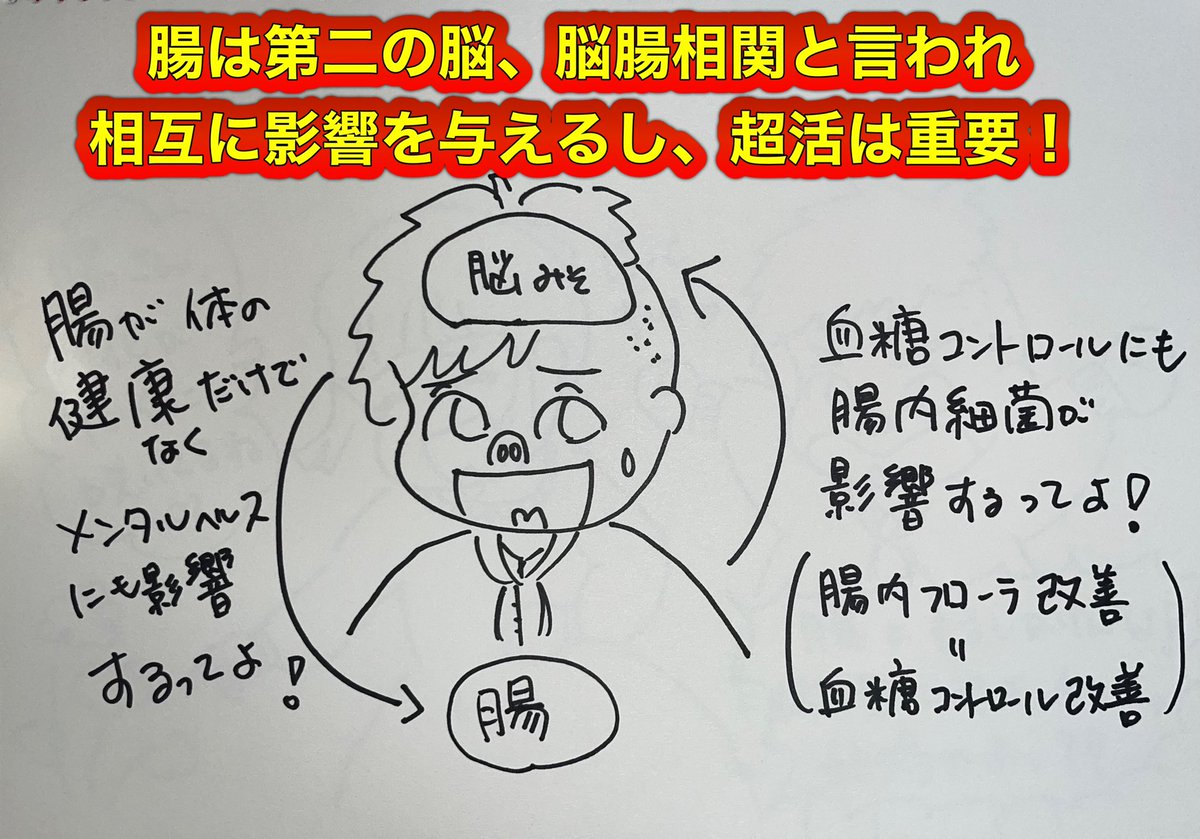 腸は第二の脳、脳腸相関と言われ
相互に影響を与えるし、超活は重要！
脳みそ
腸が体の
健康だけで
なく
メンタルヘルス
にも影響
するってよ!
血糖コントロールにも
腸内細菌が
影響するってよ!
(腸内フローラ改善
〃
血糖コントロール改善)
腸